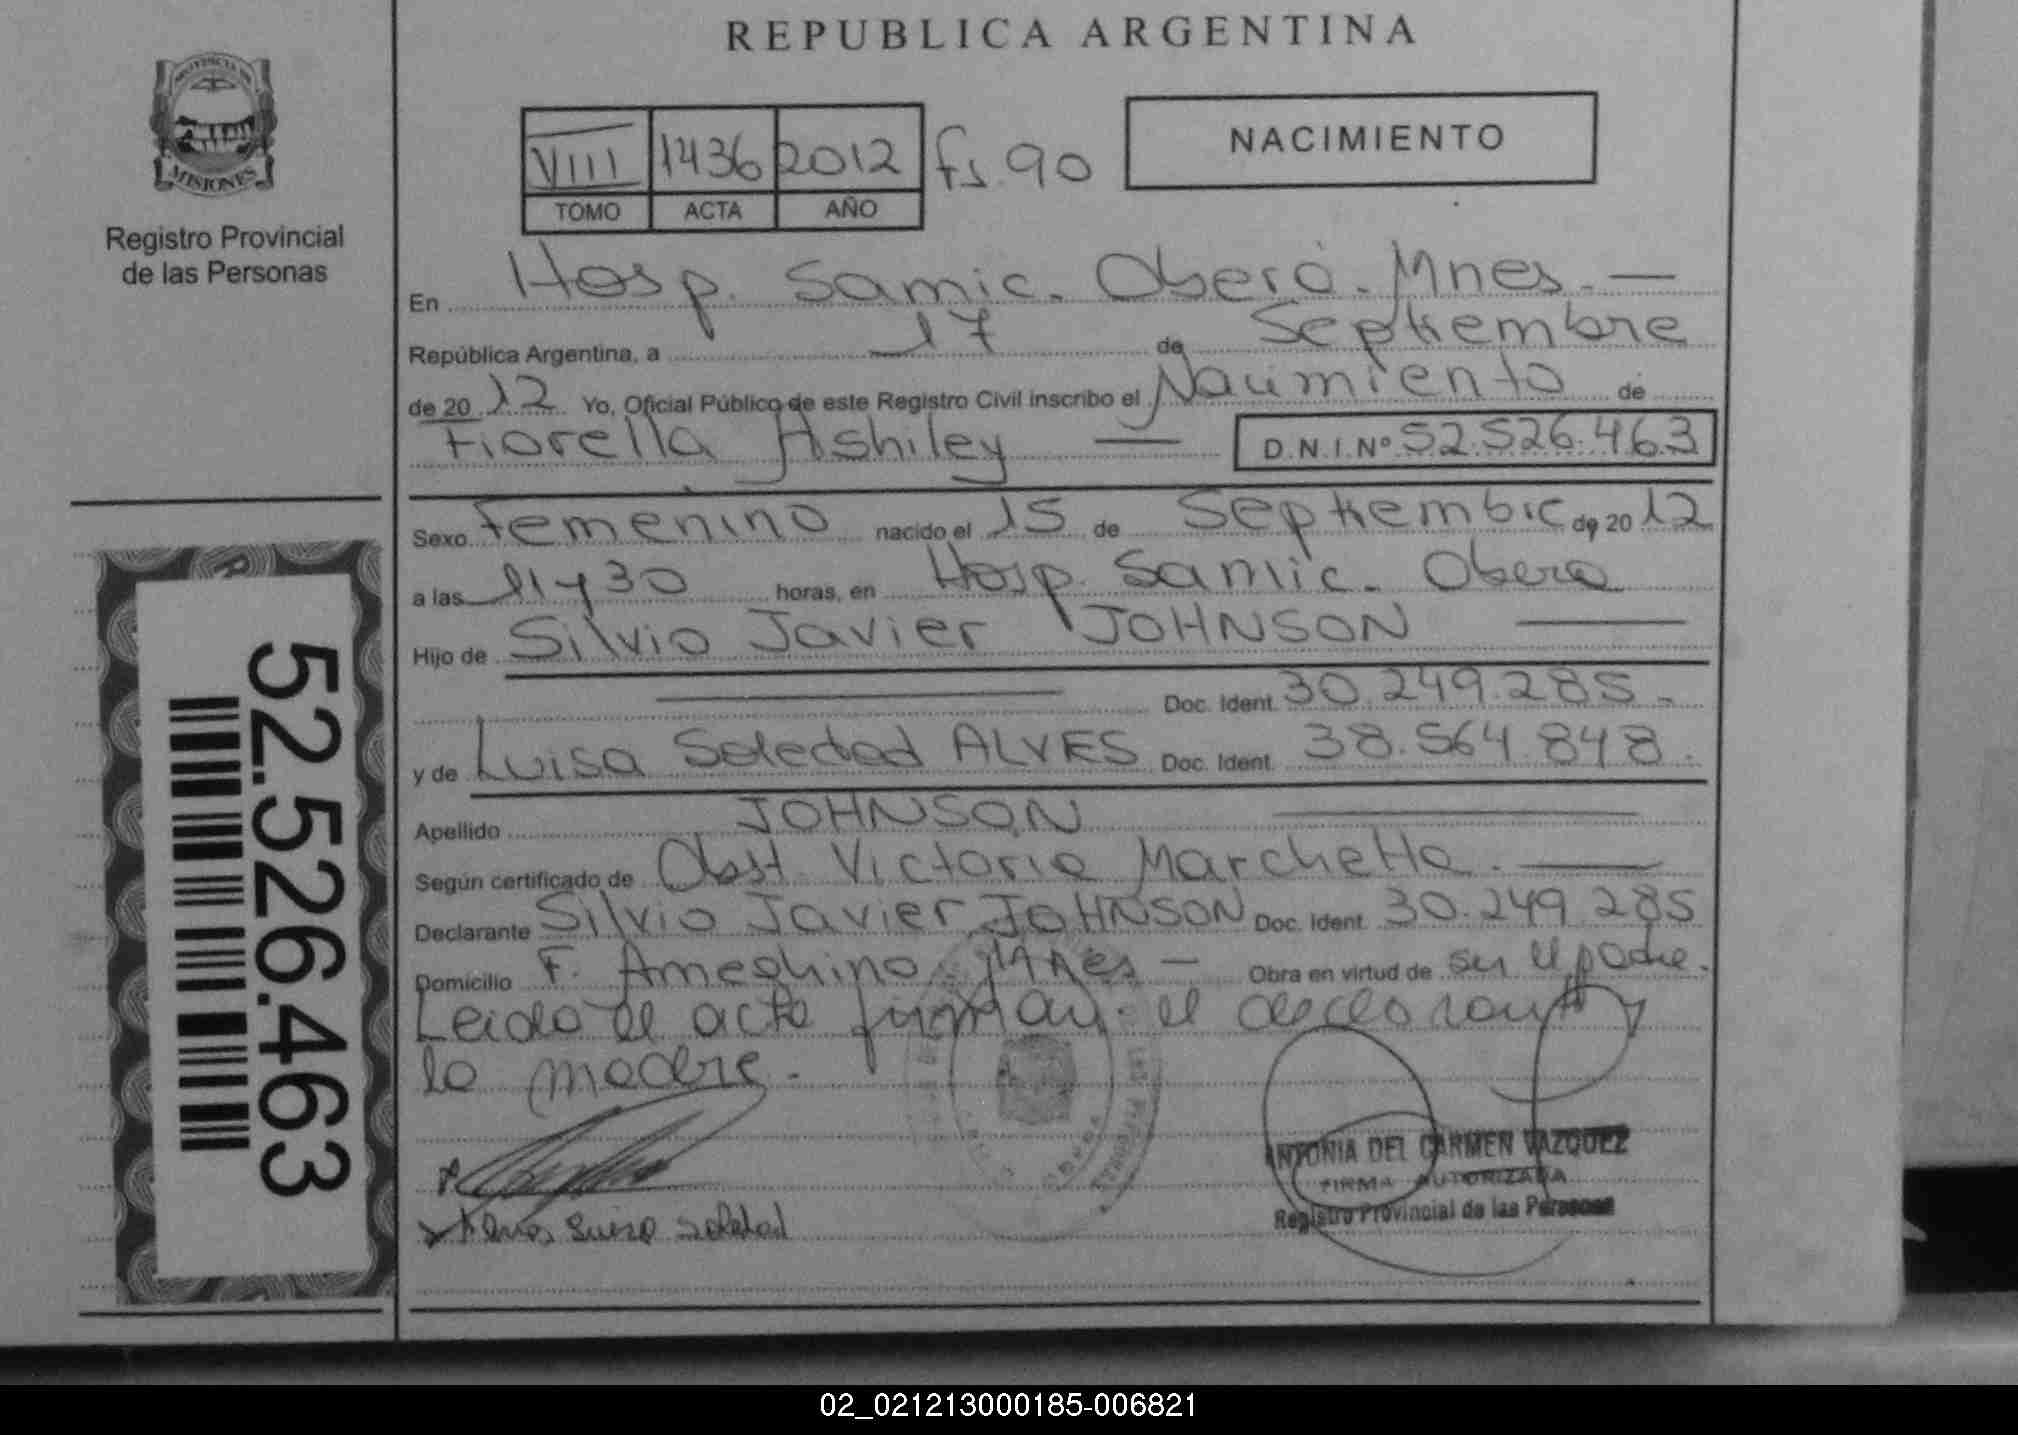 REPUBLICA ARGENTINA
PROVINCIA DE
MISIONES
Registro Provincial
de las Personas
VIII 1436 2012 fs. 90
TOMO ACTA AÑO
NACIMIENTO
En Hosp. Samic. Oberá. Mnes. —
República Argentina, a 17 de Septiembre
de 2012 Yo, Oficial Público de este Registro Civil inscribo el Nacimiento de
Fiorella Ashiley — D.N.I. Nº 52.526.463
Sexo Femenino nacido el 15 de Septiembre de 2012
a las 11 y 30 horas, en Hosp. Samic. Obera
Hijo de Silvio Javier JOHNSON —
— Doc. Ident. 30.249.285.-
y de Luisa Soledad ALVES Doc. Ident. 38.564.848.
Apellido JOHNSON —
Según certificado de Obst. Victoria Marchetta. —
Declarante Silvio Javier JOHNSON Doc. Ident. 30.249.285
Domicilio F. Ameghino Mnes — Obra en virtud de ser el padre.
Leida el acta firman. el declarante y
la madre.
ANTONIA DEL CARMEN VAZQUEZ
FIRMA AUTORIZADA
Registro Provincial de las Personas
Alves Luisa Soledad
52.526.463
02_021213000185-006821